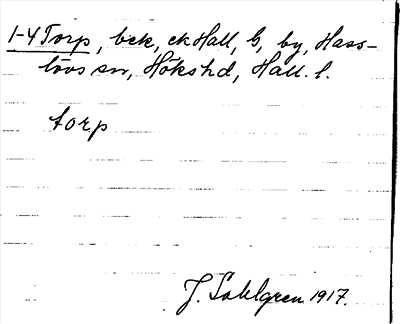 1-4 Torp, bek, ck Hall, G, by, Hass-
lövs sn, Hökshd, Hall. l.
torp
J. Sahlgren 1917.